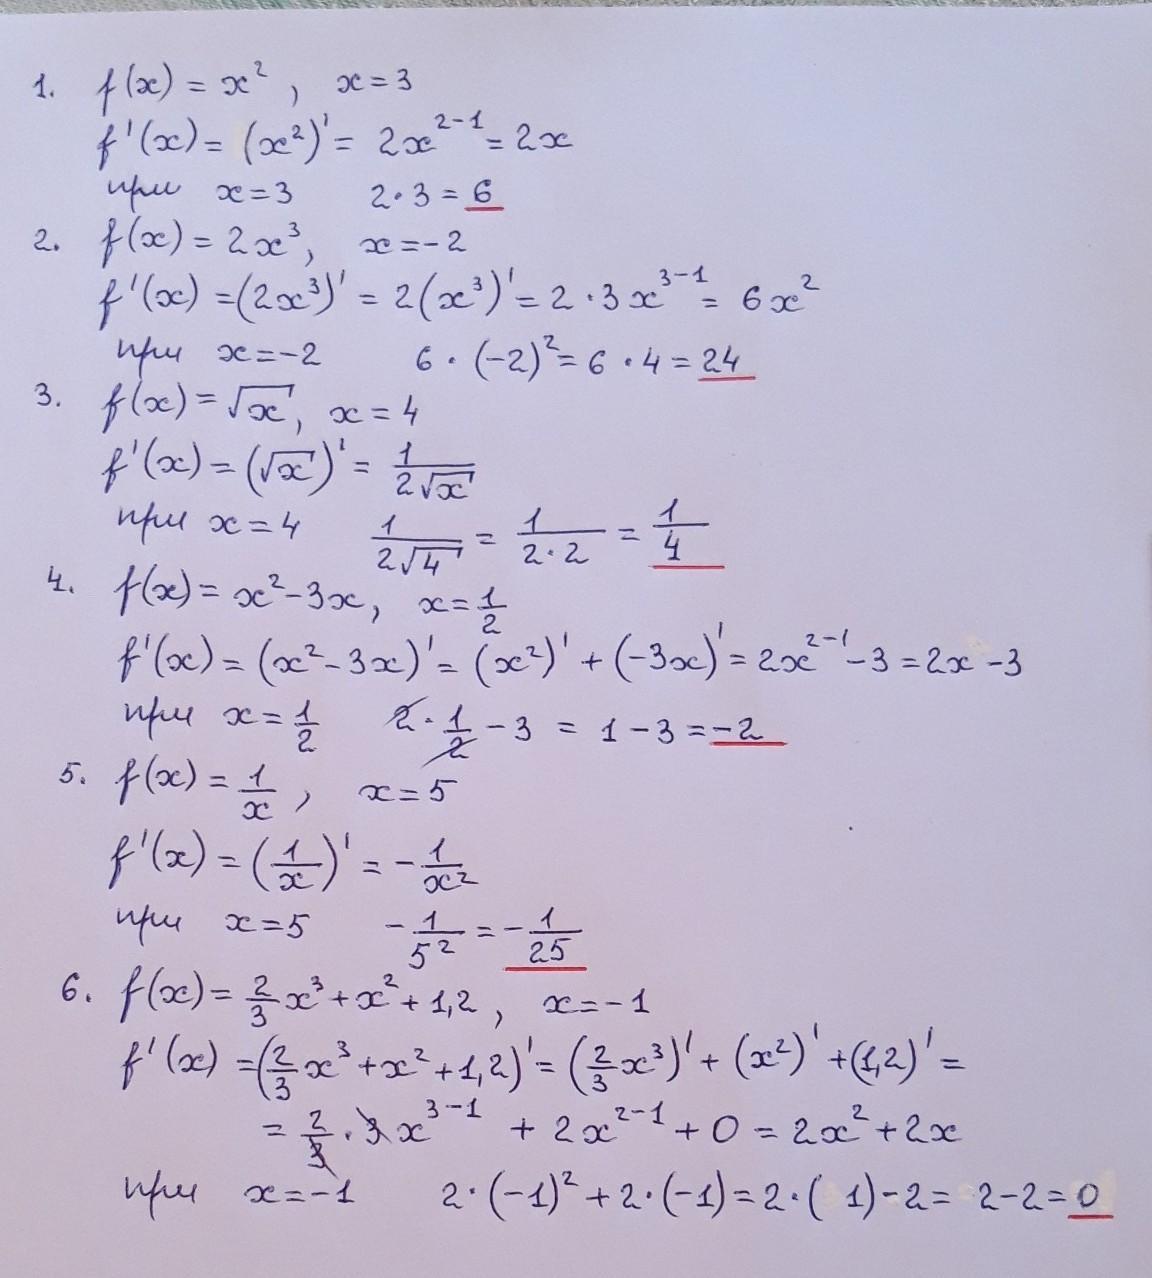 1. f(x) = x², x = 3
f'(x) = (x²)' = 2x²⁻¹ = 2x
при x = 3 2·3 = 6
2. f(x) = 2x³, x = -2
f'(x) = (2x³)' = 2(x³)' = 2·3x³⁻¹ = 6x²
при x = -2 6·(-2)² = 6·4 = 24
3. f(x) = √x, x = 4
f'(x) = (√x)' = 1/(2√x)
при x = 4 1/(2√4) = 1/(2·2) = 1/4
4. f(x) = x² - 3x, x = 1/2
f'(x) = (x² - 3x)' = (x²)' + (-3x)' = 2x²⁻¹ - 3 = 2x - 3
при x = 1/2 2·1/2 - 3 = 1 - 3 = -2
5. f(x) = 1/x, x = 5
f'(x) = (1/x)' = -1/x²
при x = 5 -1/5² = -1/25
6. f(x) = 2/3 x³ + x² + 1,2, x = -1
f'(x) = (2/3 x³ + x² + 1,2)' = (2/3 x³)' + (x²)' + (1,2)' =
= 2/3 · 3x³⁻¹ + 2x²⁻¹ + 0 = 2x² + 2x
при x = -1 2·(-1)² + 2·(-1) = 2·( 1) - 2 = 2 - 2 = 0